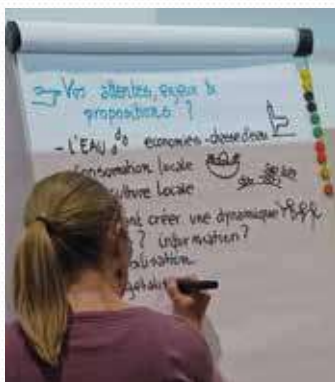 Vos attentes, enjeux &
propositions ?
- L'EAU économies - chasse d'eau
consomation locale
culture locale
créer une dynamique
? information ?
alisation
gétalis